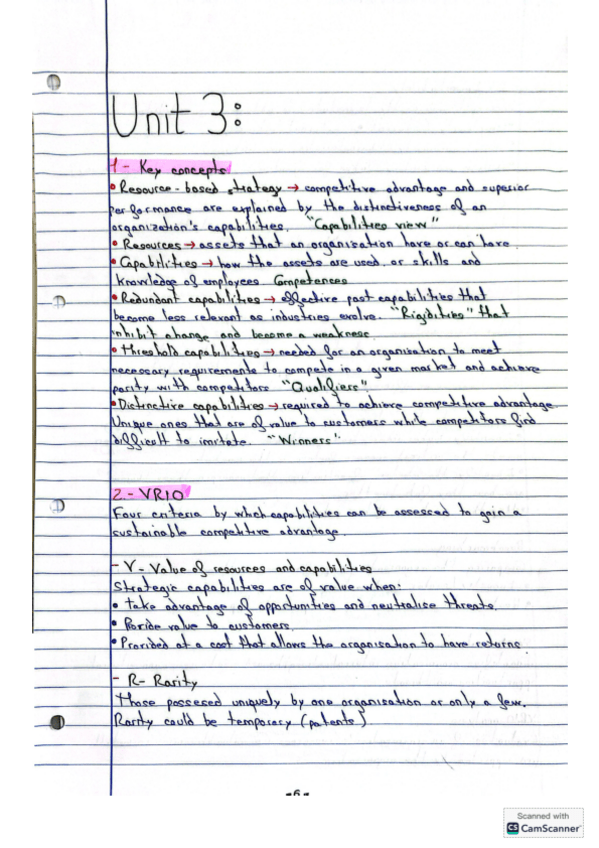 Unit 3:
1 - Key concepts
• Resource-based strategy → competitive advantage and superior
performance are explained by the distinctiveness of an
organization's capabilities. "Capabilities view"
• Resources → assets that an organisation have or can have.
• Capabilities → how the assets are used or skills and
knowledge of employees Competences
• Redundant capabilities → effective past capabilities that
become less relevant as industries evolve. "Rigidities" that
inhibit change and become a weakness.
• threshold capabilities → needed for an organisation to meet
necessary requirements to compete in a given market and achieve
parity with competitors "Qualifiers"
• Distinctive capabilities → required to achieve competitive advantage.
Unique ones that are of value to customers while competitors find
difficult to imitate. "Winners"
2 - VRIO
Four criteria by which capabilities can be assessed to gain a
sustainable competitive advantage.
- V - Value of resources and capabilities
Strategic capabilities are of value when:
• take advantage of opportunities and neutralise threats.
• Provide value to customers.
• Provided at a cost that allows the organisation to have returns.
- R - Rarity
Those possesed uniquely by one organisation or only a few.
Rarity could be temporary (patents)
- 6 -
Scanned with
CS CamScanner